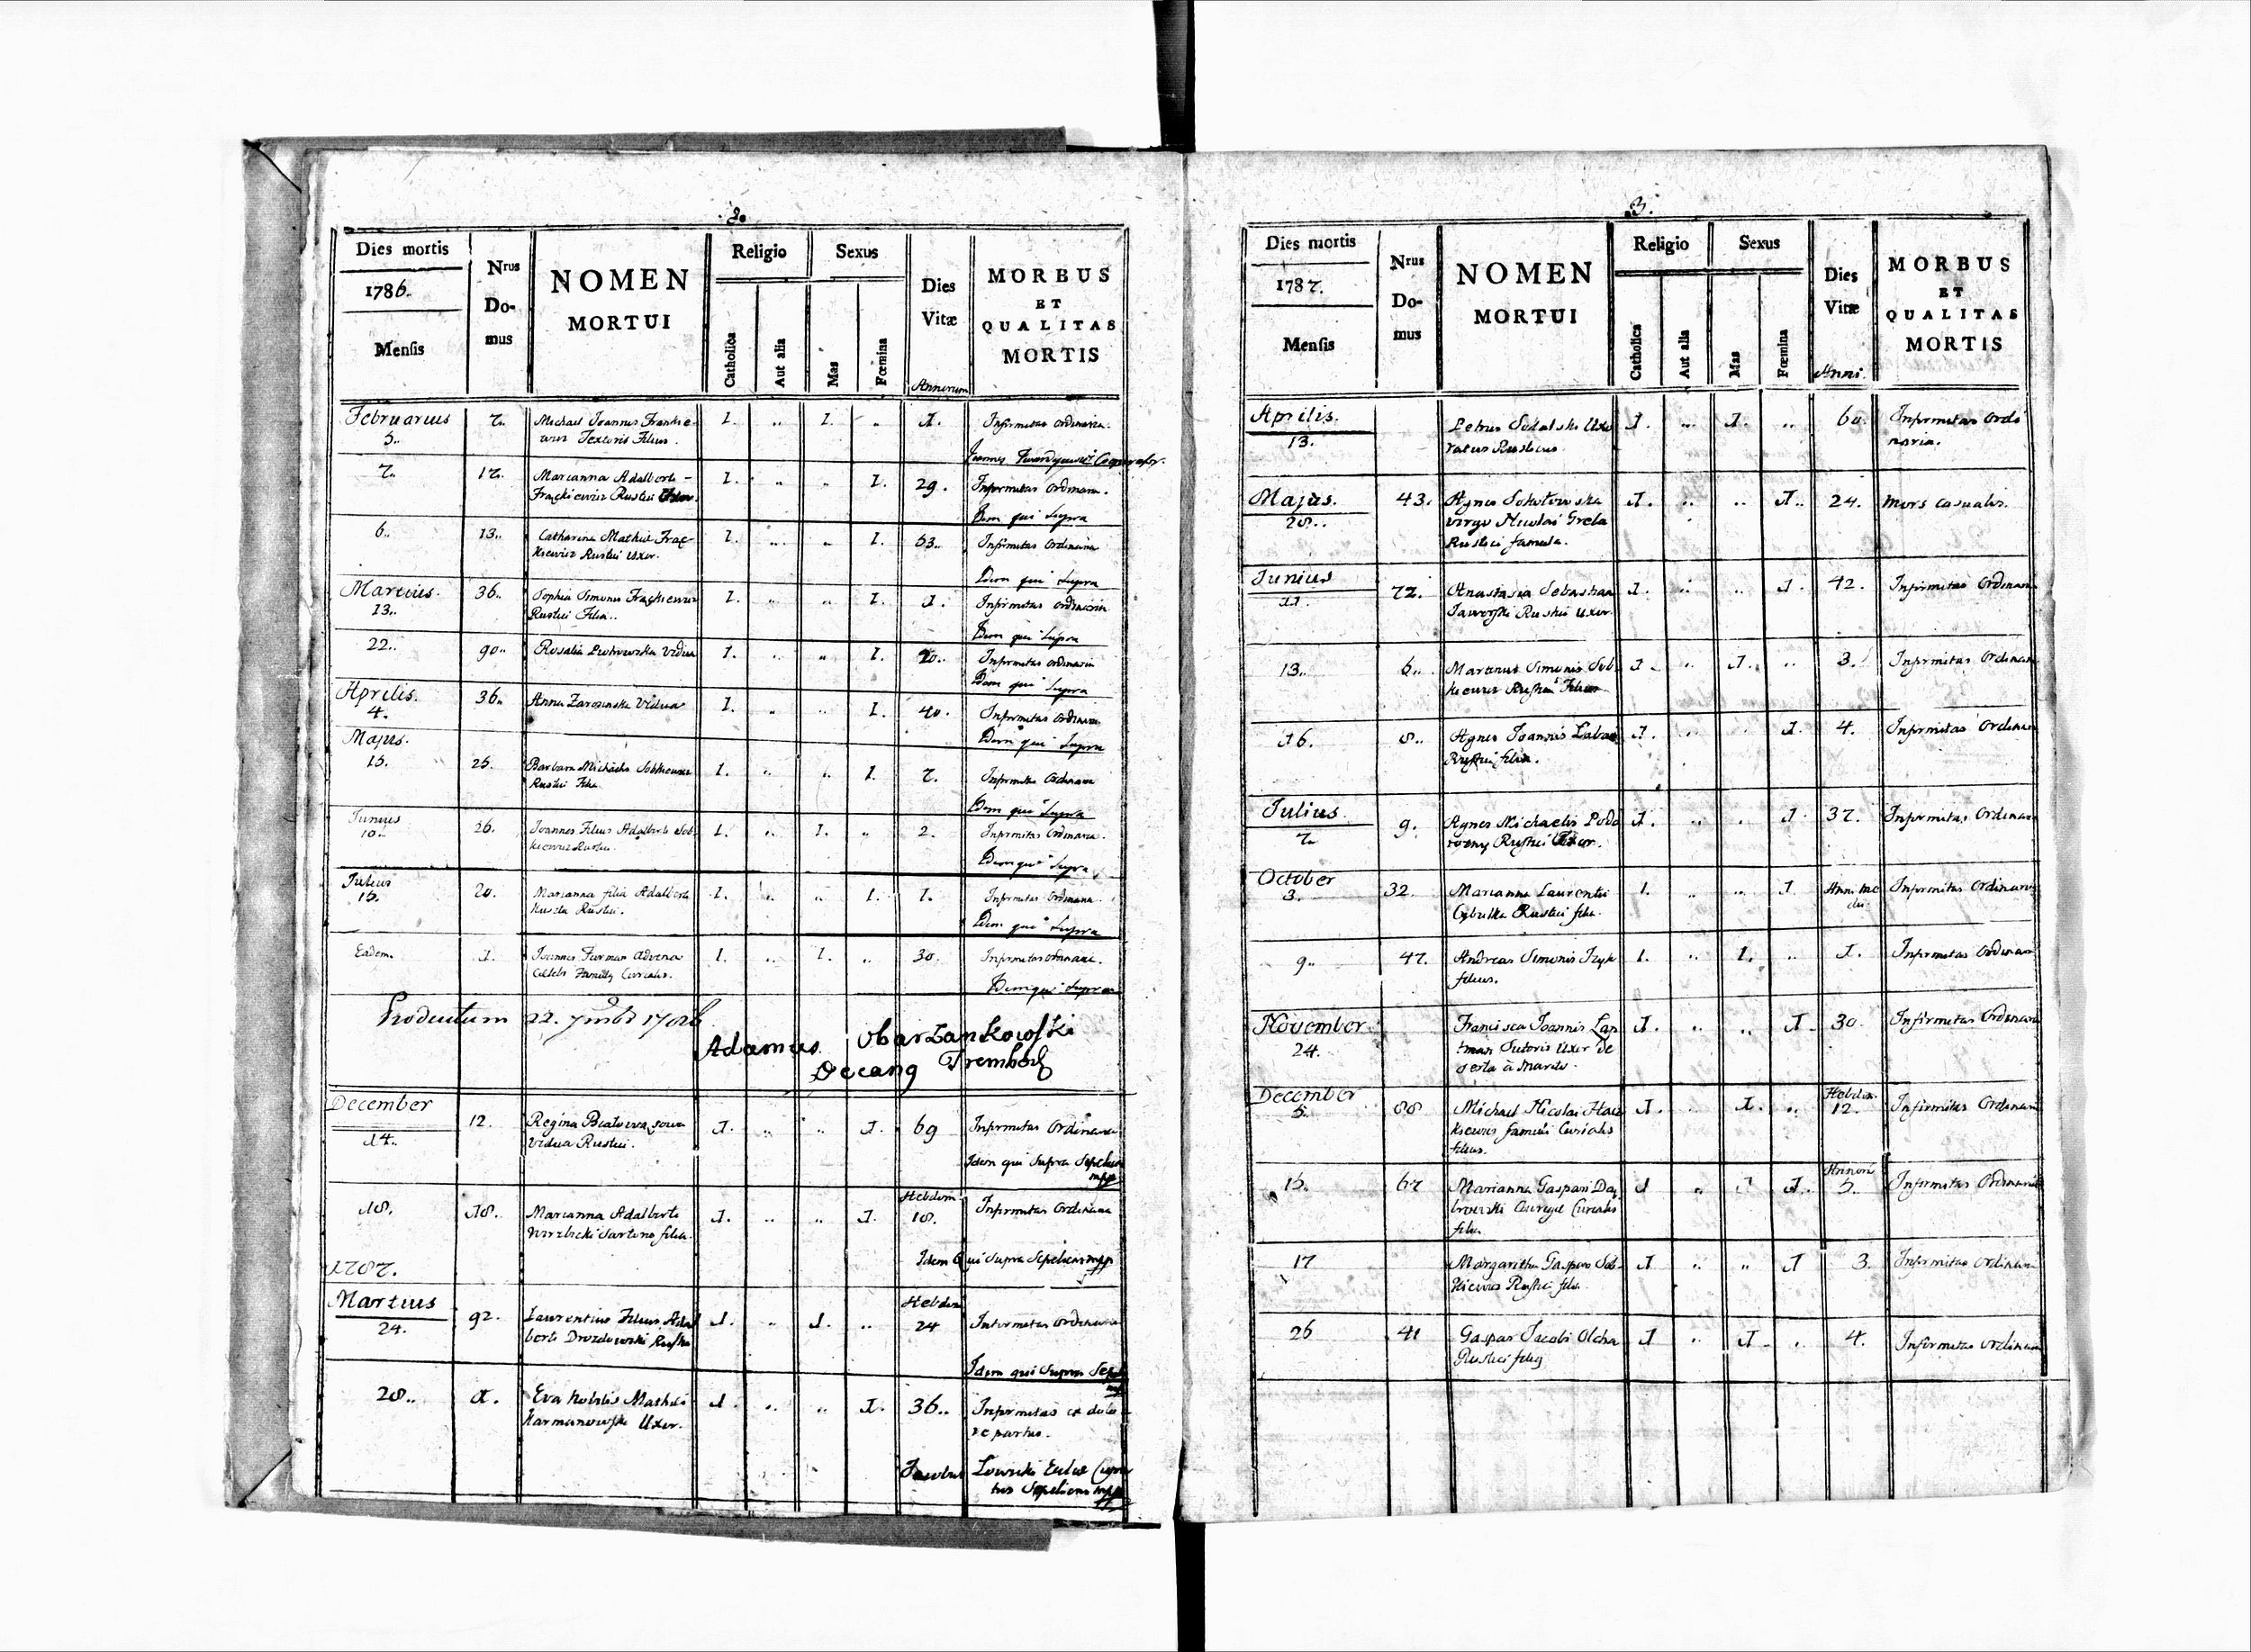 2.
Dies mortis
1786.
Mensis
Nrus Domus
NOMEN
MORTUI
Religio
Catholica
Aut alia
Sexus
Mas
Fœmina
Dies
Vitæ
Annorum
MORBUS
ET
QUALITAS
MORTIS
Februarius 7.. Michael Joannis Frankie- 1. .. 1. .. 1. Infirmitas ordinaria.
5.. wicz Textoris Filius.
Joannes Cooperator.
7.. 17. Marianna Adalberti - 1. .. .. 1. 29. Infirmitas ordinaria.
Frąckiewicz Rustici Uxor.
Idem qui Supra
6.. 13.. Catharina Mathiæ Frąc- 1. .. .. 1. 63.. Infirmitas Ordinaria
kiewicz Rustici Uxor.
Idem qui Supra
Marcius. 36.. Sophia Simonis Frąckiewicz 1. .. .. 1. 1. Infirmitas ordinaria
13.. Rustici Filia..
Idem qui Supra
22.. 90.. Rosalia Piotrowska Vidua 1. .. .. 1. 20.. Infirmitas ordinaria
Idem qui Supra
Aprilis. 36.. Anna Vidua 1. .. .. 1. 40. Infirmitas ordinaria
4.
Idem qui Supra
Majus.
15. 25. Barbara Michaelis Sobkiewicz 1. .. .. 1. 7. Infirmitas Ordinaria
Rustici Filia
Idem qui Supra
Junius 26. Joannes Filius Adalberti Sob- 1. .. 1. .. 2. Infirmitas Ordinaria.
10.. kiewicz Rustici.
Idem qui Supra
Julius 20. Marianna filia Adalberti 1. .. .. 1. 1. Infirmitas Ordinaria.
15. Rustici.
Idem qui Supra
Eadem. 1. Joannes Furman advena 1. .. 1. .. 30. Infirmitas ordinaria.
Cælebs Curialis.
Idem qui Supra
Productum 22. 7mbris 1786
Adamus Obarzankowski
Decang Trembow
December
14.. 12. Regina vidua Rustici. 1. .. .. 1. 69 Infirmitas Ordinaria
Idem qui Supra Sepeliens
mpp
18. 18.. Marianna Adalberti 1. .. .. 1. Hebdom. 18. Infirmitas Ordinaria
Wirzbicki Sartoris filia.
Idem Qui Supra Sepeliens mpp
1787.
Martius
24. 92. Laurentius Filius Adal 1. .. 1. .. Hebdom 24 Infirmitas ordinaria
berti Drozdowski Rustici
Idem qui Supra Sepel
mpp
28.. 1. Eva Nobilis Mathæi 1. .. .. 1. 36.. Infirmitas ex dolo
Karmanowski Uxor. re partus.
Jacobus Łowicki Eccl Cura
tus Sepeliens mpp
3.
Dies mortis
1787.
Mensis
Nrus Domus
NOMEN
MORTUI
Religio
Catholica
Aut alia
Sexus
Mas
Fœmina
Dies
Vitæ
Anni.
MORBUS
ET
QUALITAS
MORTIS
Aprilis. Petrus Sokalski Uxo 1. .. 1. .. 60. Infirmitas Ordi
13. ratus Rusticus. naria.
Majus. 43. Agnes Sokołowska 1. .. .. 1.. 24. Mors casualis.
28.. virgo Nicolai Grela
Rustici famula.
Junius 72. Anastasia Sebastiani 1. .. .. 1. 42. Infirmitas Ordinaria
11. Jaworski Rustici Uxor.
13.. 6.. Martinus Simonis Sob 1.. .. 1. .. 3. Infirmitas Ordinari
kiewicz Rustici Filius
16. 8.. Agnes Joannis 1. .. .. 1. 4. Infirmitas Ordinari
Rustici filia.
Julius. 9. Agnes Michaelis Podo 1. .. .. 1. 37. Infirmitas Ordinari
7.. rozny Rustici Uxor.
October 32. Marianna Laurentii 1. .. .. 1. Infirmitas Ordinaria
3.. Cybulka Rustici filia.
9.. 47. Andreas Simonis 1. .. 1. .. 1. Infirmitas Ordinari
filius.
November Francisca Joannis 1. .. .. 1. 30. Infirmitas Ordinaria
24. Sutoris Uxor de
serta à Marito.
December 88 Michael Nicolai 1. .. 1. .. Hebdom. 12. Infirmitas Ordinari
5. famuli Curialis
filius.
15. 67 Marianna Gaspari Dą 1 .. 1 1. Annoru 5.. Infirmitas Ordinaria
browski Aurigæ Curialis
filia
17 Margaritha Gaspari Sob- 1 .. .. 1 3. Infirmitas ordinari
kiewicz Rustici filia.
26 41 Gaspar Jacobi Olcha 1 .. 1 .. 4. Infirmitas ordinari
Rustici filig